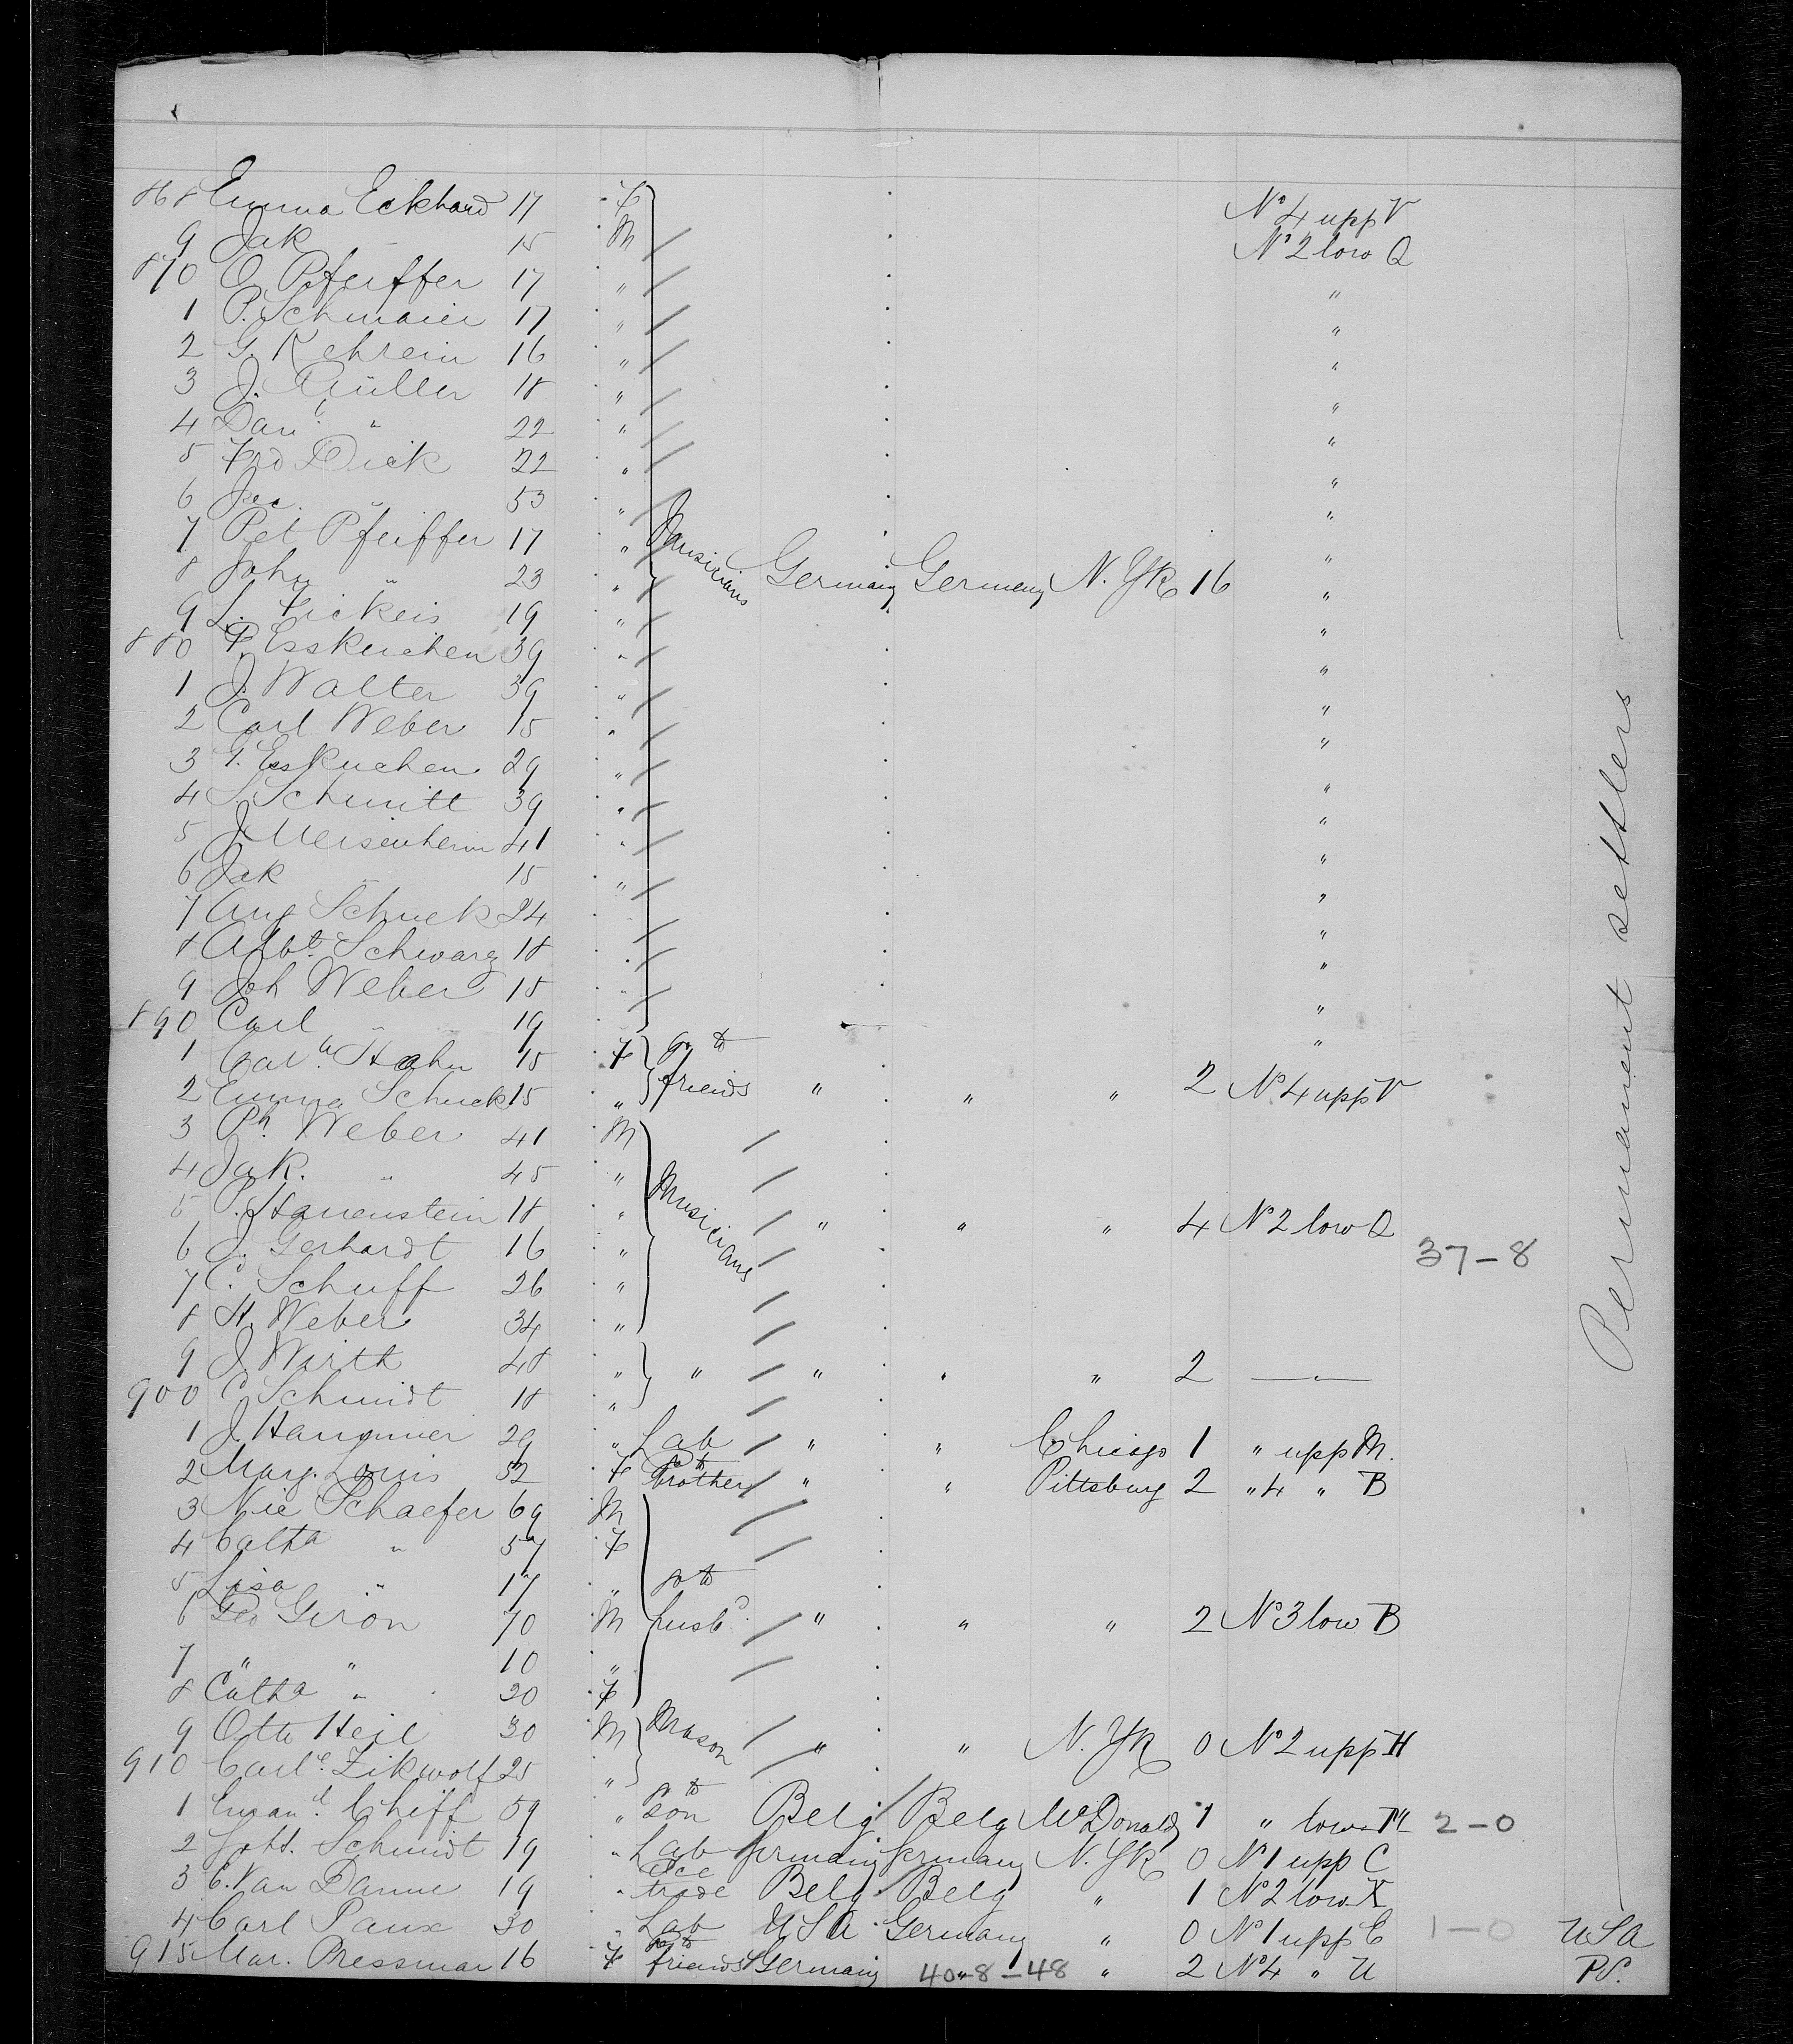 868 Emma Eckhard 17 F No 4 upp V
9 Jak 15 M No 2 low Q
870 O. Pfeiffer 17 " "
1 P. Schmaier 17 " "
2 G. Kehrein 16 " "
3 J. Müller 18 " "
4 Danl. " 22 " "
5 Frd Dick 22 " "
6 Jac. " 53 " "
7 Pet Pfeiffer 17 " "
8 John " 23 " Musicians Germany Germany N. Yk 16 "
9 L. 19 " "
880 P. Esskuchen 39 " "
1 J. Walter 39 " "
2 Carl Weber 15 " "
3 G. Esskuchen 29 " "
4 S. Schmitt 39 " "
5 J. Meisenheim 41 " "
6 Jak 15 " "
7 Aug Schuck 24 " "
8 Albt. Schwarz 18 " "
9 Joh Weber 15 " "
890 Carl " 19 "
1 Cath. Hahn 15 F go to "
2 Emma Schuck 15 " friends " " " 2 No 4 upp V
3 Ph. Weber 41 M
4 Jak. " 45 "
5 P. Hauenstein 18 " Musicians " " " 4 No 2 low Q
6 J. Gerhardt 16 " 37-8
7 C. Schuff 26 "
8 H. Weber 34 "
9 J. Wirth 48 " " " " " 2 — " —
900 C. Schmidt 18 "
1 J. Hammer 29 " Lab " " Chicago 1 " upp M.
2 Marg. Louis 52 F go to brother " " Pittsburg 2 " 4 " B
3 Nic Schaefer 69 M
4 Catha " 57 F
5 Lisa " 17 " go to
6 Geo Geron 70 M husbd. " " " 2 No 3 low B
7 " " 10 "
8 Catha " 20 F
9 Otto Heil 30 M Mason " " N. Yk 0 No 2 upp H
910 Carle. Zikwolf 25 "
1 Emanl. Chiff 59 " go to son Belg Belg McDonald 1 " low M 2-0
2 Gott. Schmidt 19 " Lab Germany Germany N. Yk 0 No 1 upp C
3 C. Van Damme 19 " trade Belg Belg " 1 No 2 low X
4 Carl Paux 30 " Lab USA Germany " 0 No 1 upp C 1-0 USA
915 Mar. Pressmar 16 F go to friends Germany " 40-8-48 " 2 No 4 " U P.S.
Permanent settlers